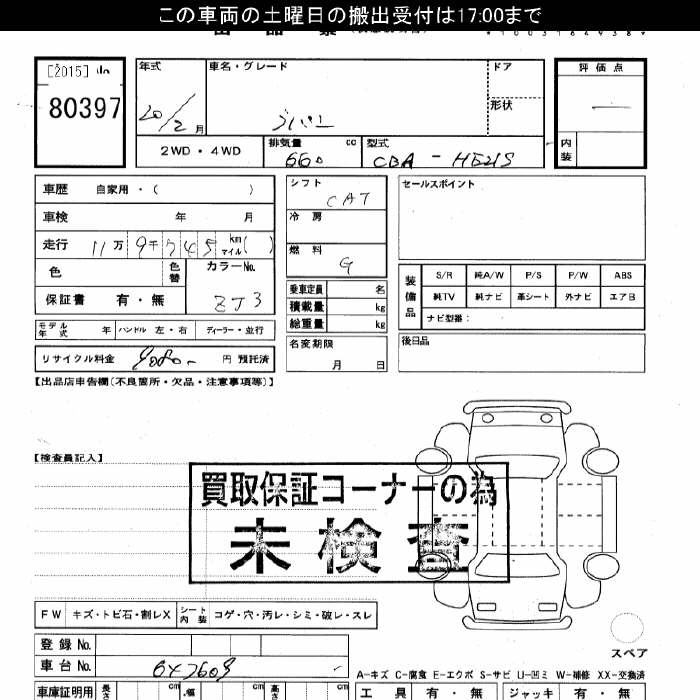 この車両の土曜日の搬出受付は17:00まで
[2015]
80397
年式
20/2 月
車名・グレード
ドア
形状
評価点
内装
2WD・4WD
排気量 660 cc
型式 CBA-HE21S
車歴 自家用・( )
車検 年 月
走行 11万9千745 km マイル( )
色
色替
カラーNo.
ZJ3
保証書 有・無
シフト CAT
冷房
燃料 G
乗車定員 名
積載量 kg
総重量 kg
名変期限 月 日
セールスポイント
装備品
S/R 純A/W P/S P/W ABS
純TV 純ナビ 革シート 外ナビ エアB
ナビ型番:
後日品
モデル年式 年 ハンドル 左・右 ディーラー・並行
リサイクル料金 円 預託済
【出品店申告欄(不良箇所・欠品・注意事項等)】
【検査員記入】
買取保証コーナーの為
未検査
FW キズ・トビ石・割レX シート内装 コゲ・穴・汚レ・シミ・破レ・スレ
スペア
登録 No.
車台 No.
A-キズ C-腐食 E-エクボ S-サビ U-凹ミ W-補修 XX-交換済
車庫証明用 長さ cm 幅 cm 高さ cm
工具 有・無 ジャッキ 有・無